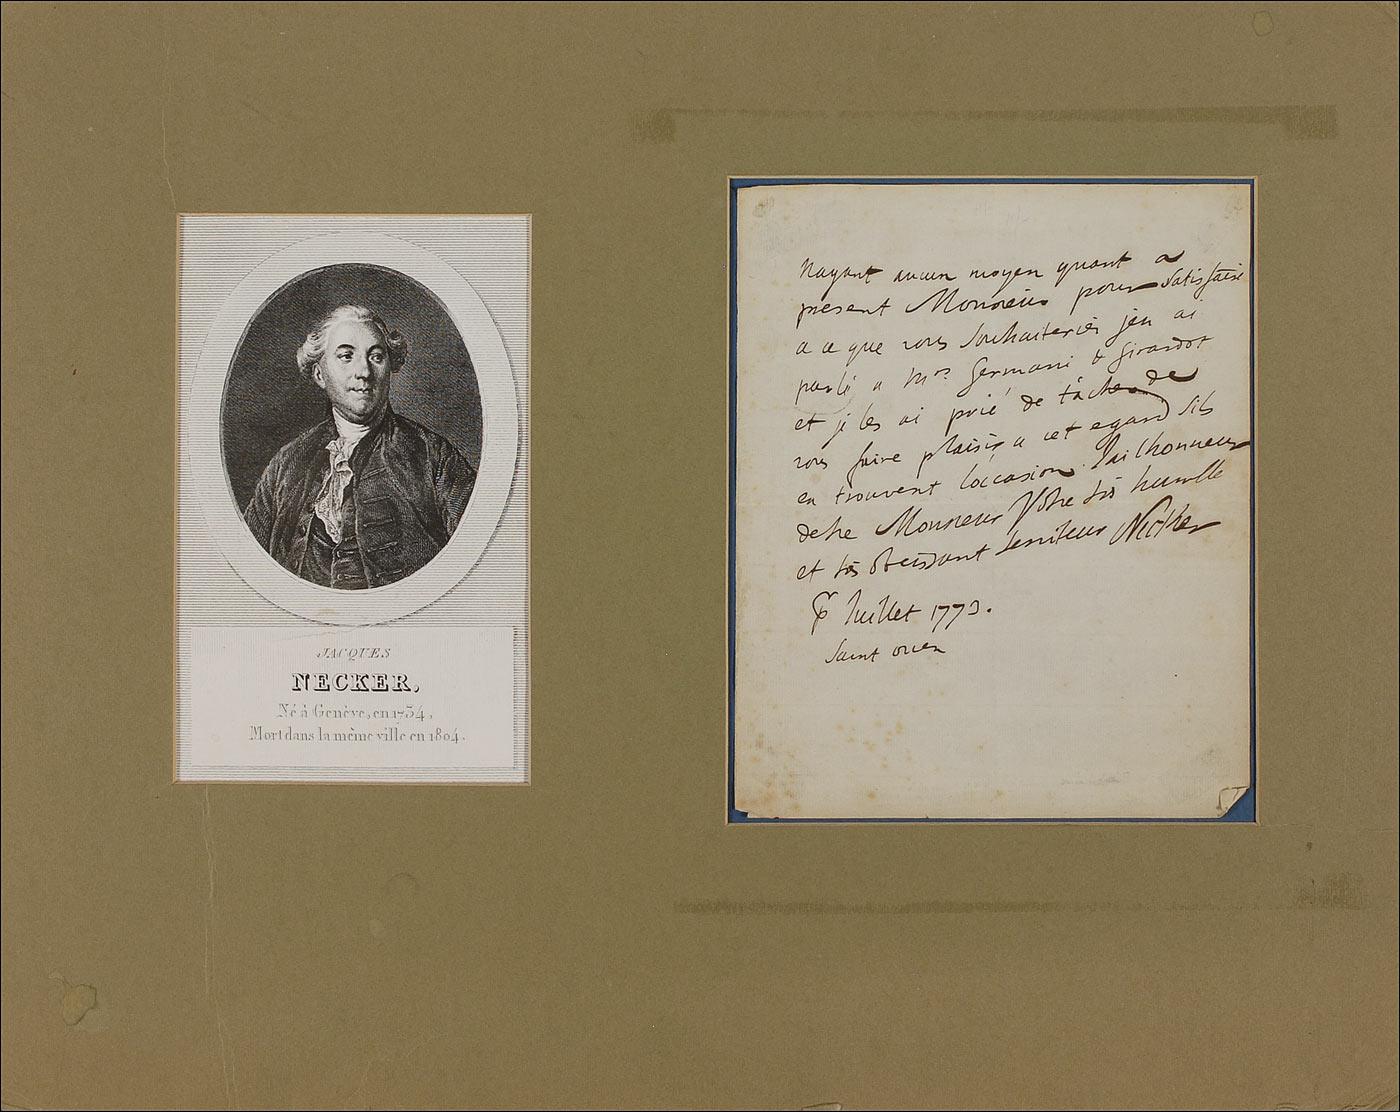 JACQUES
NECKER,
Né à Genève, en 1734,
Mort dans la même ville en 1804.
Nayant aucun moyen quant a
present Monsieur pour satisfaire
a ce que vous souhaiteriés jen ai
parlé a Mrs Germani & Girardot
et je les ai prié de tâcher de
vous faire plaisir a cet egard sils
en trouvent loccasion. Jai lhonneur
detre Monsieur Votre très humble
et très obeissant serviteur Necker
Juillet 1773.
Saint ouen